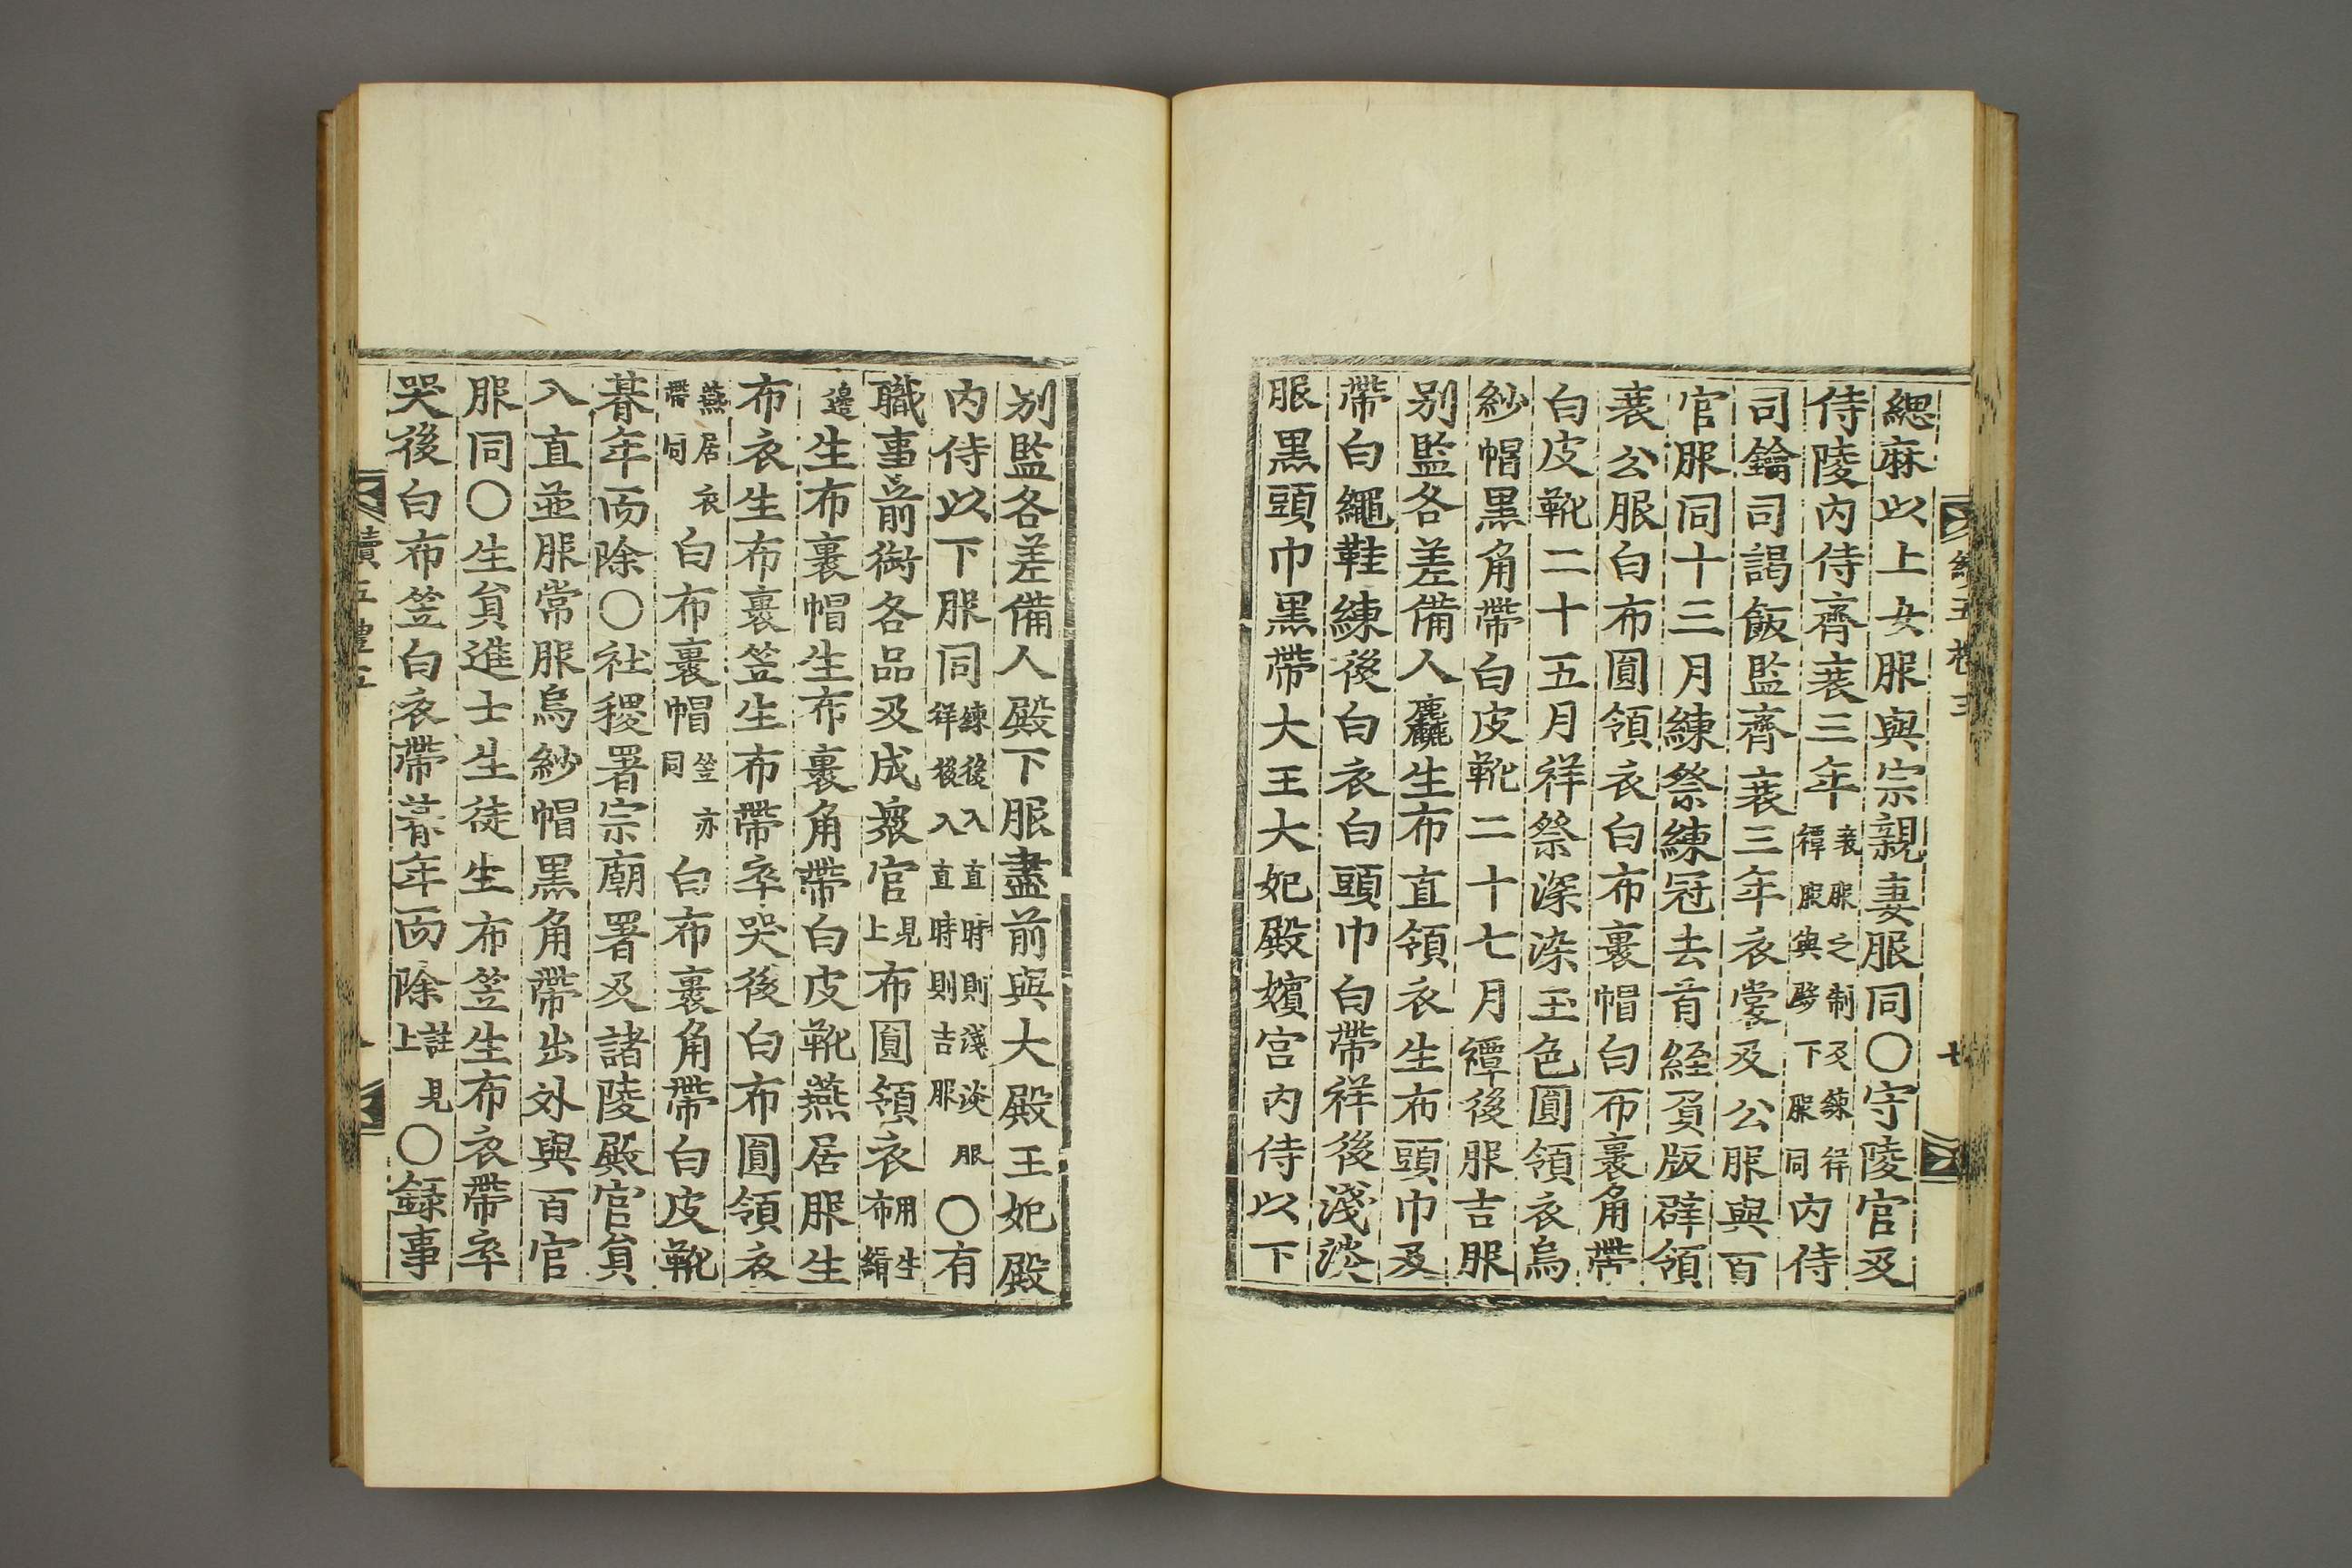 緦麻以上女服與宗親妻服同〇守陵官及
侍陵内侍齊衰三年衰服之制及練祥禫服與殿下服同内侍
司鑰司謁飯監齊衰三年衣裳及公服與百
官服同十三月練祭練冠去首絰負版辟領
衰公服白布圓領衣白布裹帽白布裹角帶
白皮靴二十五月祥祭深染玉色圓領衣烏
紗帽黒角帶白皮靴二十七月禫後服吉服
别監各差備人麤生布直領衣生布頭巾及
帶白繩鞋練後白衣白頭巾白帶祥後淺淡
服黒頭巾黒帶大王大妃殿嬪宮内侍以下
别監各差備人殿下服盡前與大殿王妃殿
内侍以下服同練後入直時則淺淡服祥後入直時則吉服〇有
職事前銜各品及成衆官見上布圓領衣用生布緝
邊生布裹帽生布裹角帶白皮靴燕居服生
布衣生布裹笠生布帶卒哭後白布圓領衣
燕居衣帶同白布裹帽笠亦同白布裹角帶白皮靴
朞年而除〇社稷署宗廟署及諸陵殿官負
入直並服常服烏紗帽黒角帶出外與百官
服同〇生負進士生徒生布笠生布衣帶卒
哭後白布笠白衣帶朞年而除註見上〇録事